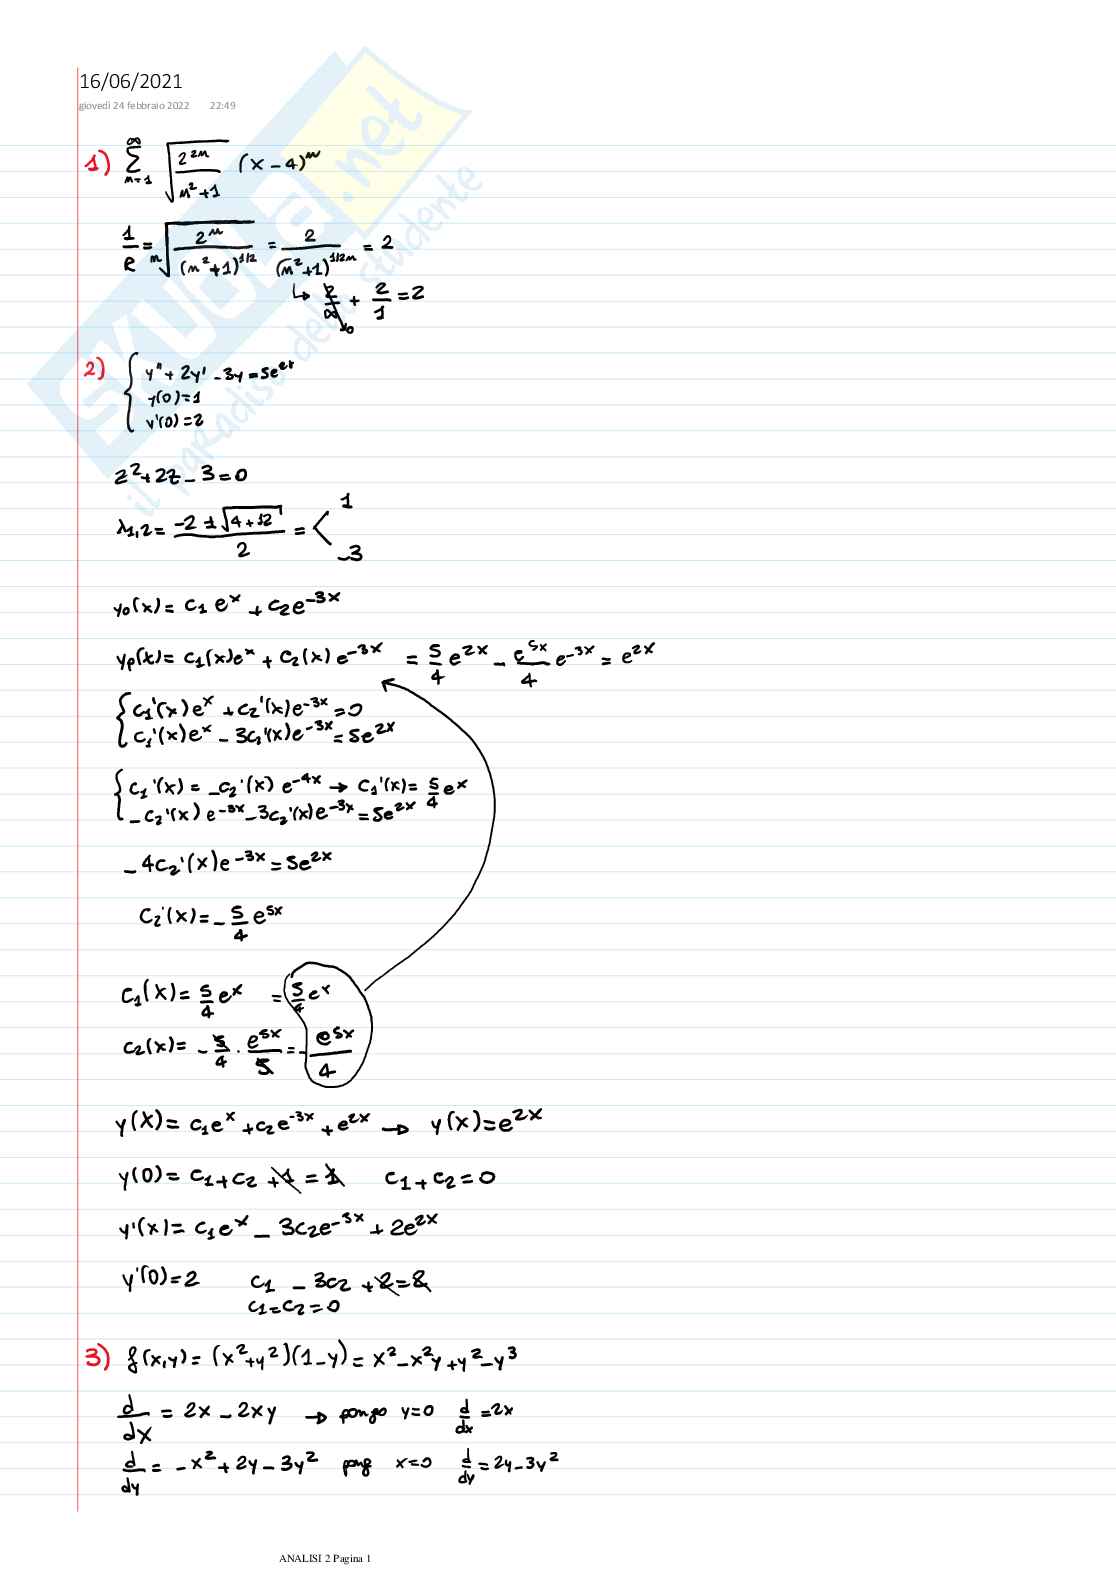 16/06/2021
giovedì 24 febbraio 2022 22:49
SKUOLA.net
il paradiso dello studente
1) ∑_{n=1}^{∞} √(2^{2n}/(n²+1)) (x-4)^n
1/R = ⁿ√(2^n/(n²+1)^{1/2}) = 2/(n²+1)^{1/2n} = 2
↳ 2/∞ → 0 + 2/1 = 2
2) { y''+2y'-3y=5e^{2x}
y(0)=1
y'(0)=2
z²+2z-3=0
λ1,2 = (-2±√(4+12))/2 = < 1
-3
y0(x)= c1 e^x + c2 e^{-3x}
yp(x)= c1(x)e^x + c2(x) e^{-3x} = 5/4 e^{2x} - e^{5x}/4 e^{-3x} = e^{2x}
{ c1'(x)e^x + c2'(x)e^{-3x}=0
c1'(x)e^x - 3c2'(x)e^{-3x}=5e^{2x}
{ c1'(x) = -c2'(x) e^{-4x} → c1'(x)= 5/4 e^x
-c2'(x) e^{-3x} - 3c2'(x)e^{-3x}=5e^{2x}
-4c2'(x)e^{-3x}=5e^{2x}
c2'(x)=-5/4 e^{5x}
c1(x)= 5/4 e^x = 5/4 e^x
c2(x)= -5/4 · e^{5x}/5 = -e^{5x}/4
y(x)= c1e^x + c2e^{-3x} + e^{2x} → y(x)=e^{2x}
y(0)= c1+c2 +1 = 1 c1+c2=0
y'(x)= c1e^x - 3c2e^{-3x} + 2e^{2x}
y'(0)=2 c1 - 3c2 +2=2
c1=c2=0
3) f(x,y)= (x²+y²)(1-y)= x²-x²y+y²-y³
d/dx = 2x - 2xy → pongo y=0 d/dx =2x
d/dy = -x²+2y-3y² pong x=0 d/dy =2y-3y²
ANALISI 2 Pagina 1